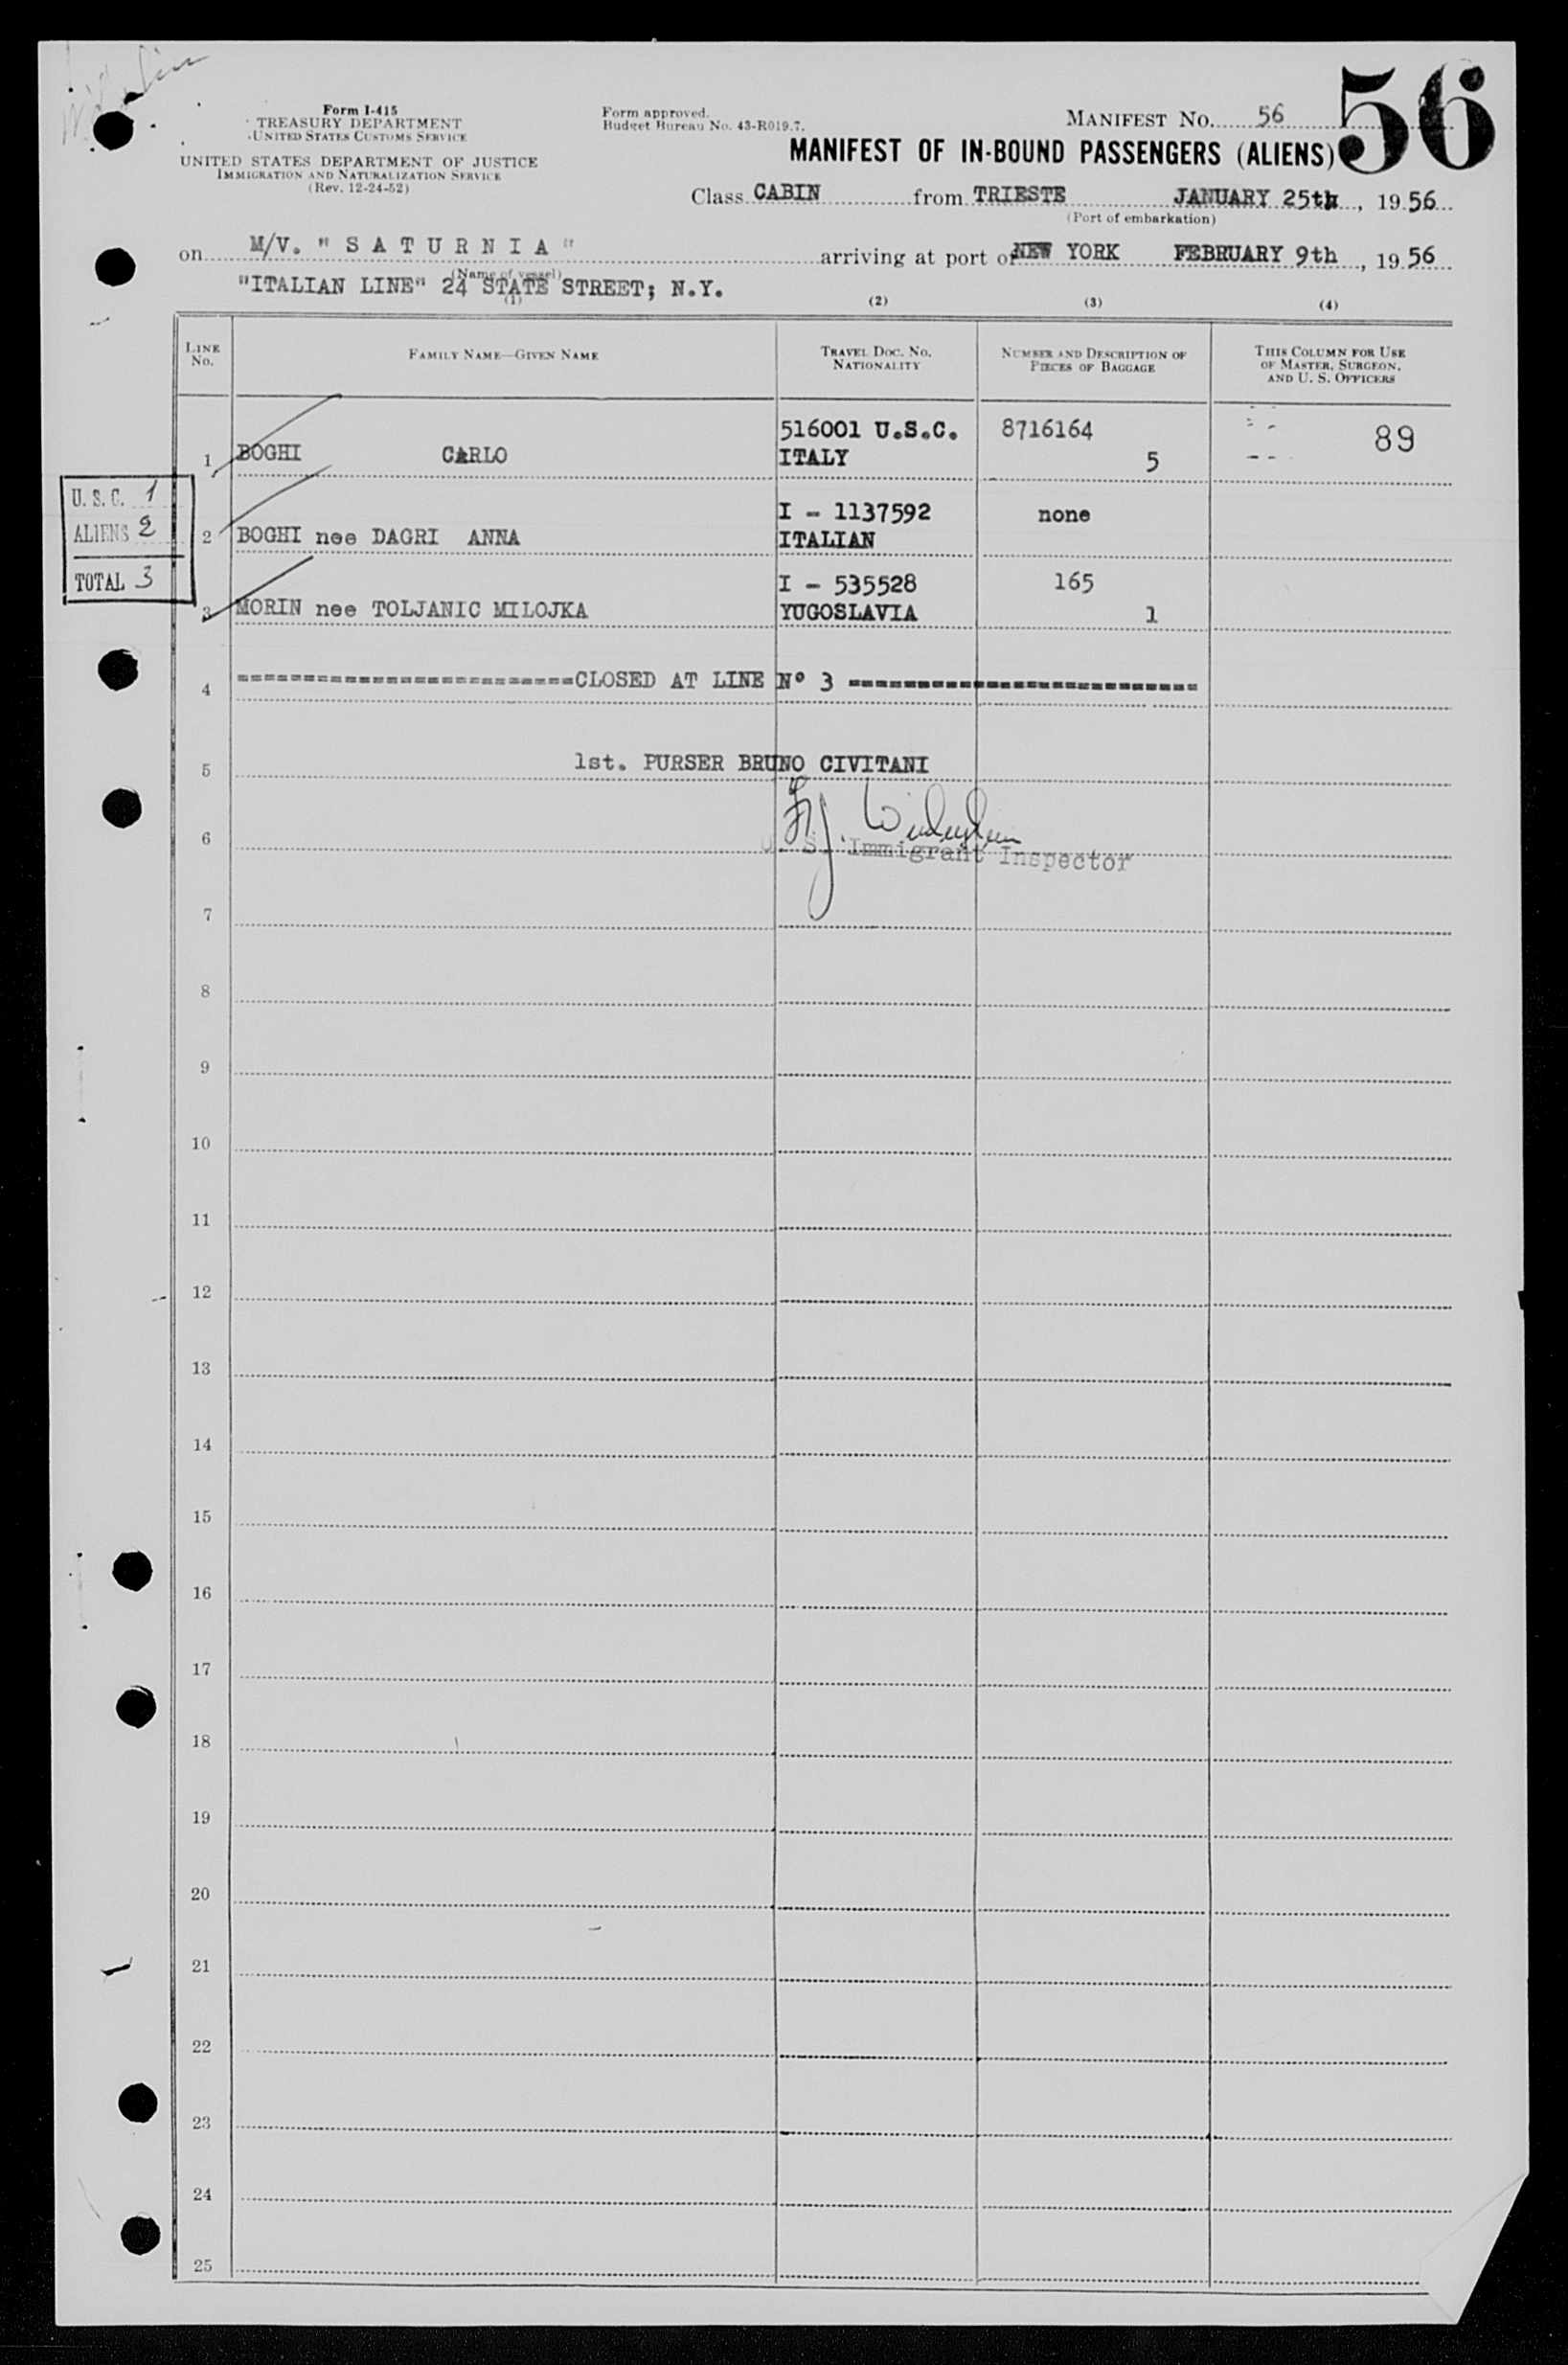 56
Form I-415
TREASURY DEPARTMENT
UNITED STATES CUSTOMS SERVICE
UNITED STATES DEPARTMENT OF JUSTICE
IMMIGRATION AND NATURALIZATION SERVICE
(Rev. 12-24-52)
Form approved.
Budget Bureau No. 43-R019.7.
MANIFEST No. 56
MANIFEST OF IN-BOUND PASSENGERS (ALIENS)
Class CABIN from TRIESTE JANUARY 25th, 1956
(Port of embarkation)
on M/V. "SATURNIA" arriving at port of NEW YORK FEBRUARY 9th, 1956
(Name of vessel)
"ITALIAN LINE" 24 STATE STREET; N.Y.
(1) (2) (3) (4)
LINE No. FAMILY NAME—GIVEN NAME TRAVEL DOC. No. NATIONALITY NUMBER AND DESCRIPTION OF PIECES OF BAGGAGE THIS COLUMN FOR USE OF MASTER, SURGEON, AND U. S. OFFICERS
516001 U.S.C. 8716164 89
1 BOGHI CARLO ITALY 5
U. S. C. 1
ALIENS 2
TOTAL 3
I - 1137592 none
2 BOGHI nee DAGRI ANNA ITALIAN
I - 535528 165
3 MORIN nee TOLJANIC MILOJKA YUGOSLAVIA 1
4 ========================CLOSED AT LINE Nº 3 =========================
5 1st. PURSER BRUNO CIVITANI
6 U. S. Immigrant Inspector
7
8
9
10
11
12
13
14
15
16
17
18
19
20
21
22
23
24
25